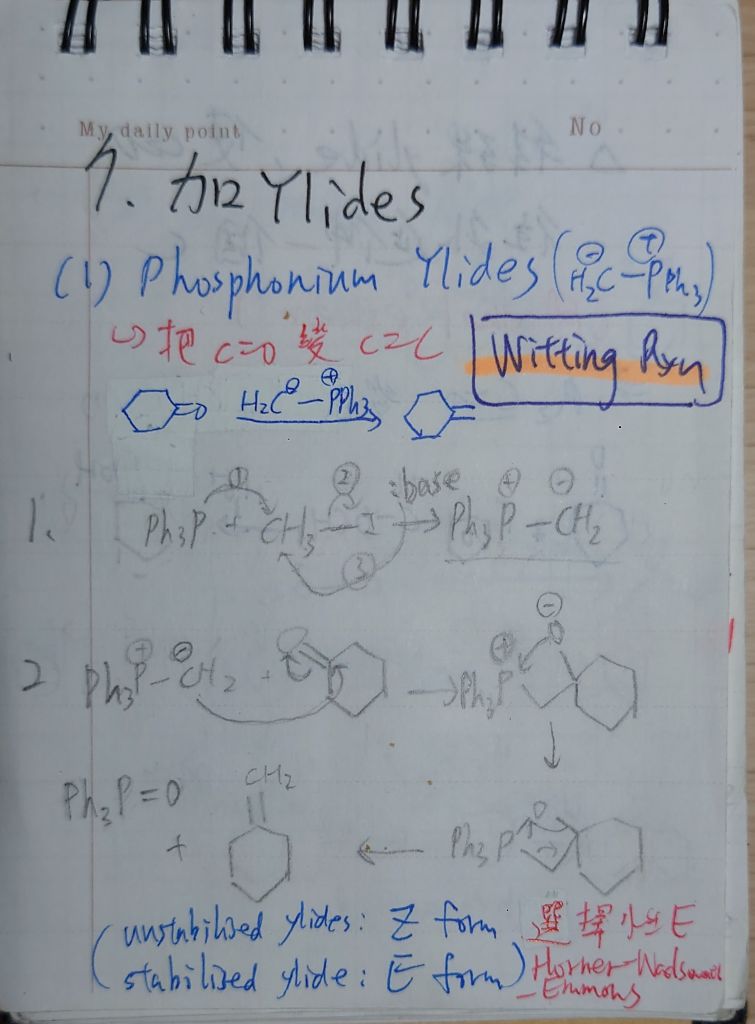 My daily point No
7. 加 Ylides
(1) Phosphonium Ylides (H₂C⊖–⊕PPh₃)
↳ 把 C=O 變 C=C Witting Rxn
O H₂C⊖–⊕PPh₃
1. Ph₃P + CH₃–I :base → Ph₃P⊕–CH₂⊖
① ② ③
2 Ph₃P⊕–⊖CH₂ + O → Ph₃P⊕ O⊖
Ph₃P=O + CH₂ ← Ph₃P O
(unstabilized ylides: Z form 選擇性E
stabilized ylide: E form) Horner-Wadsworth
-Emmons